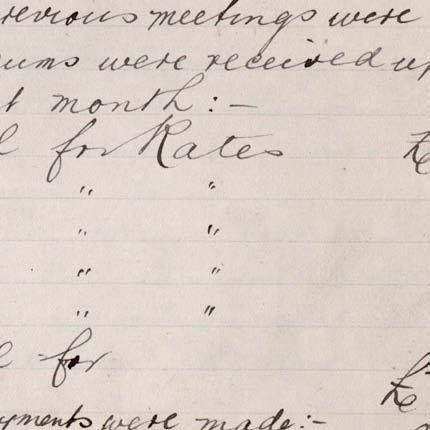 revious meetings were
ums were received up
t month :-
l for Rates £
" "
" "
" "
" "
l for £
yments were made :-